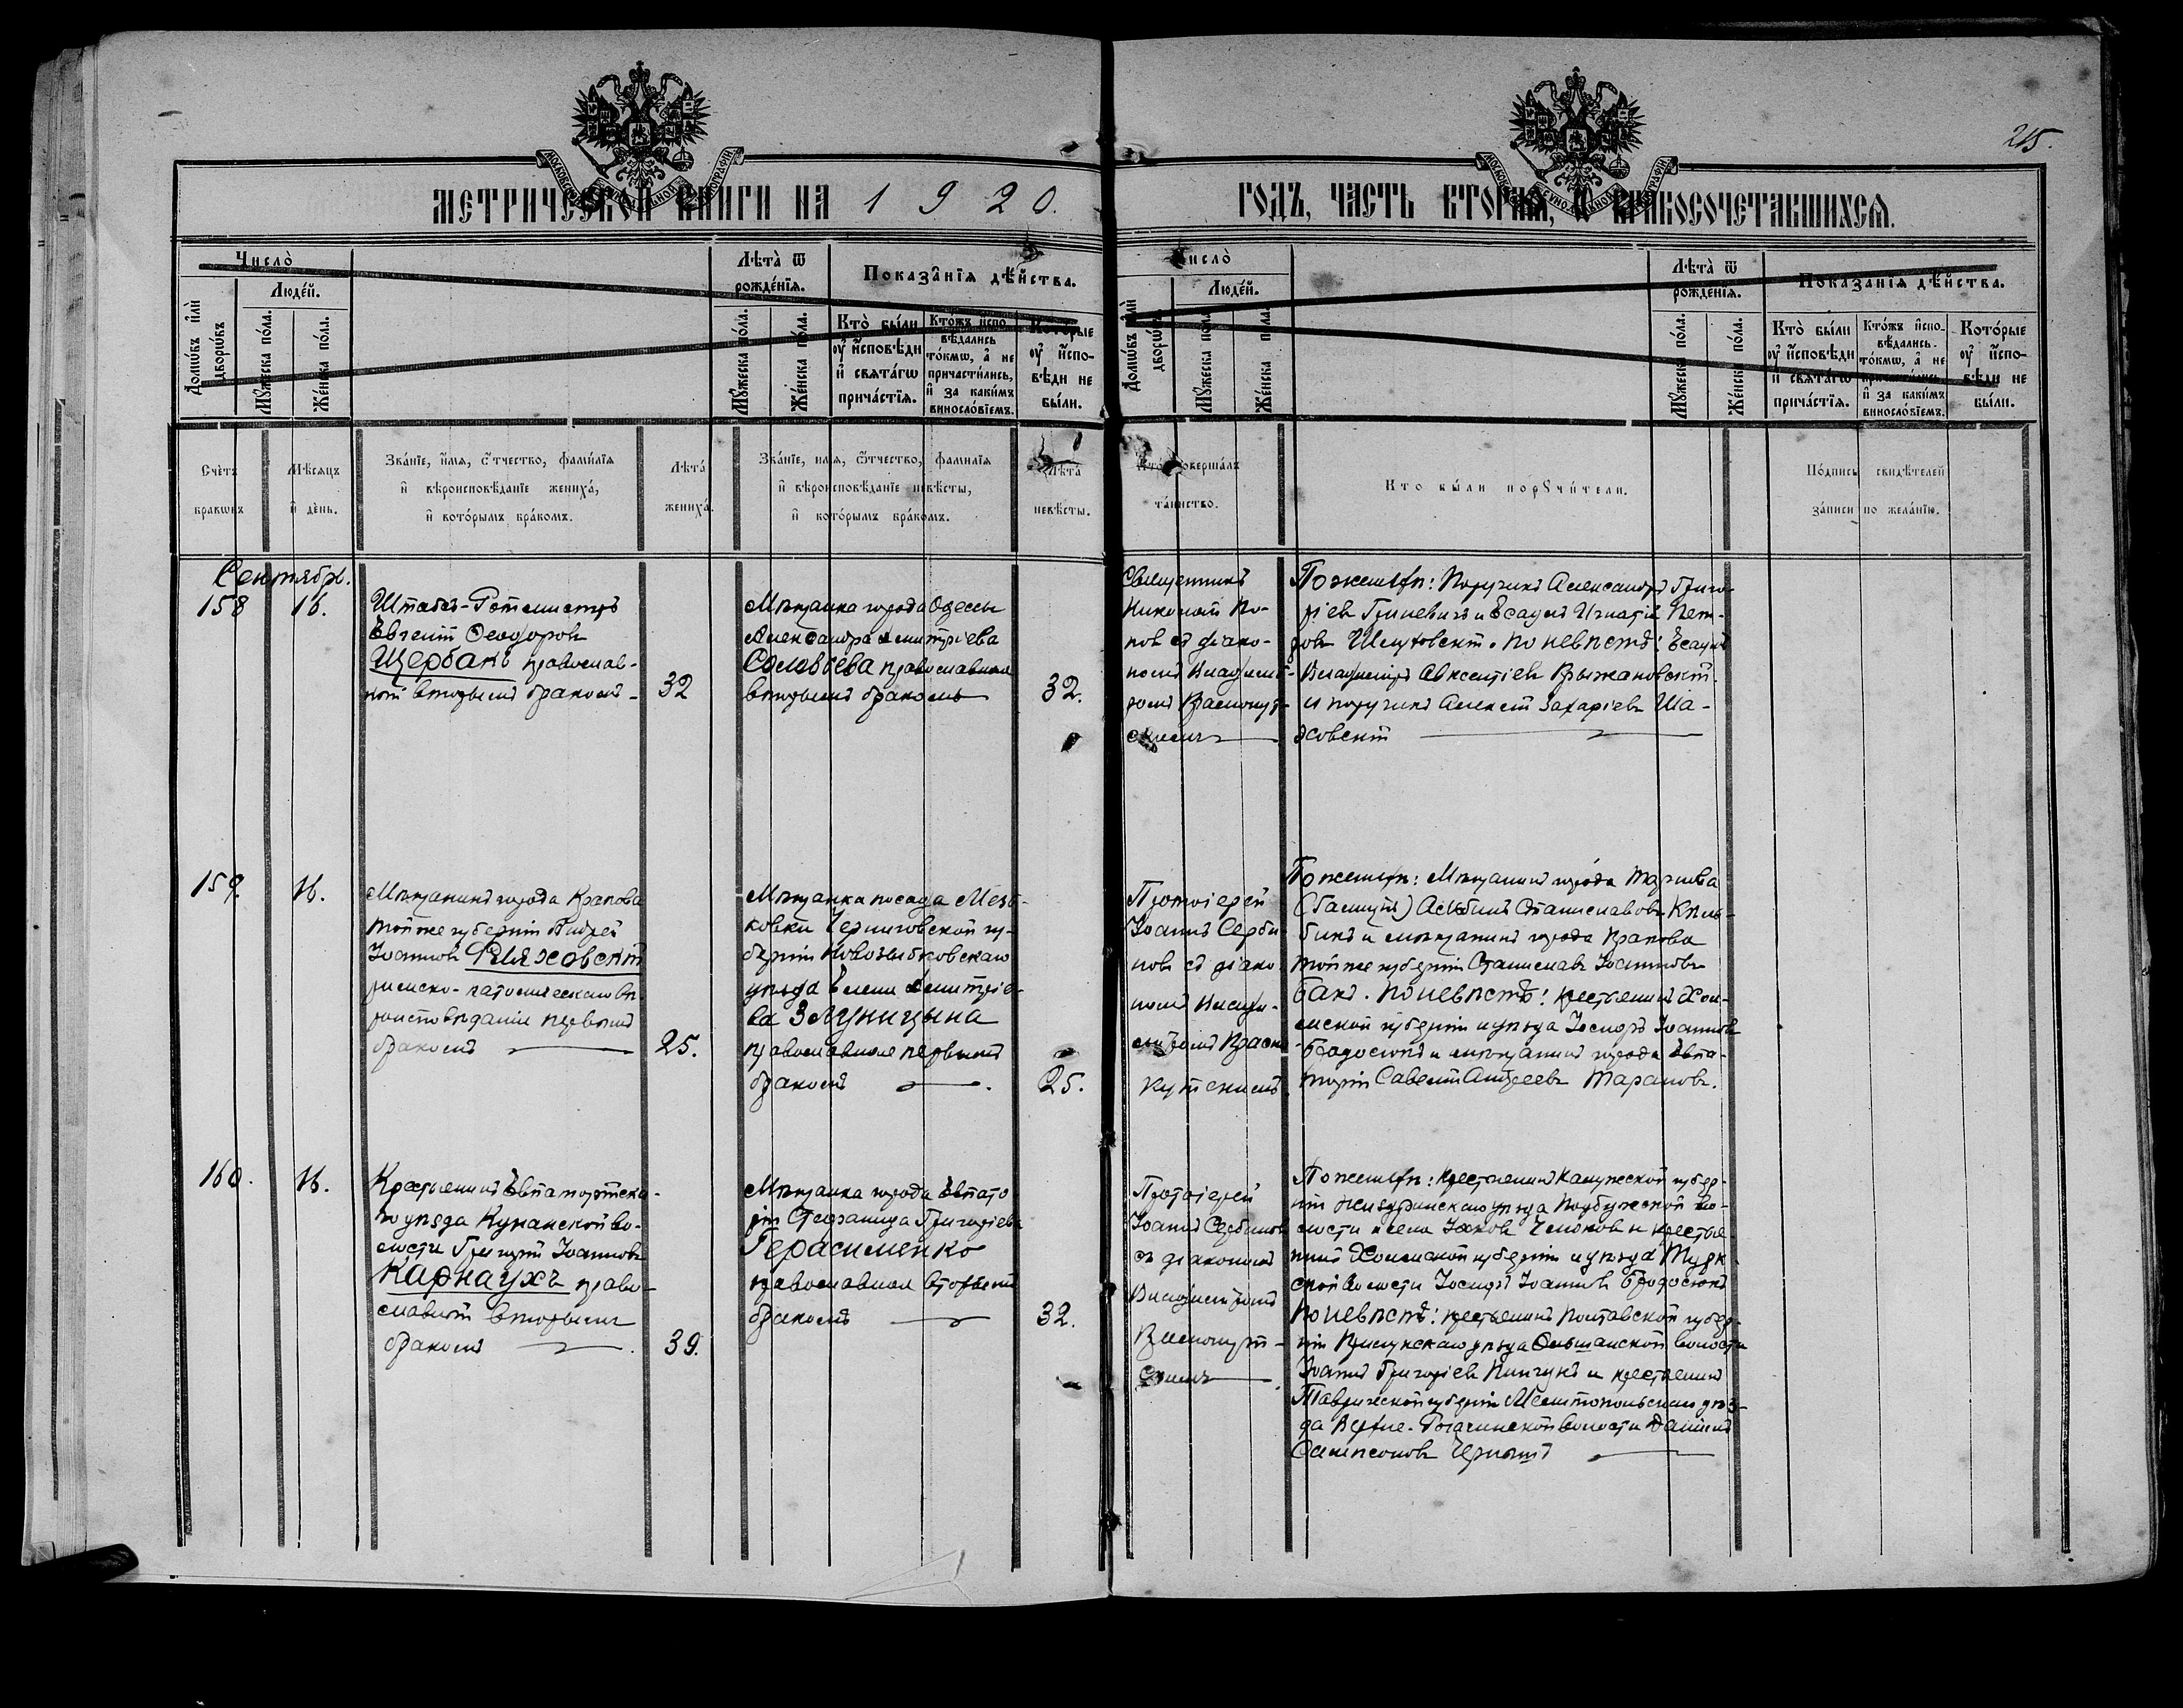 215.
МЕТРИЧЕСКОЙ КНИГИ НА 1920.
ГОДЪ, ЧАСТЬ ВТОРАЯ, ѡ БРАКОСОЧЕТАВШИХСЯ.
Число̀
Людей.
Домѡвъ и҆лѝ дворѡвъ
Мꙋжеска по́ла.
Же́нска по́ла.
Лѣта̀ ѿ рожде́нїѧ.
Мꙋжеска по́ла.
Же́нска по́ла.
Показа̂нїѧ дѣ́йства.
Кто̀ бы́ли ᲂу҆ и҆сповѣди и҆ свѧта́гѡ прича́стїѧ.
Кто́жъ и҆спо-вѣдались то́кмѡ, а҆ не причасти́лись, и҆ за каки́мъ винослові́емъ.
Кото́рые ᲂу҆ и҆спо-вѣди не бы́ли.
Счетъ бракѡвъ
Мѣсѧцъ и҆ де́нь.
Зва́нїе, и҆́мѧ, ѻ҆́тчество, фами́лїѧ и҆ вѣроисповѣ́данїе жениха̀, и҆ кото́рымъ бра́комъ.
Лѣта̀ жениха̀.
Зва́нїе, и҆́мѧ, ѻ҆́тчество, фами́лїѧ и҆ вѣроисповѣ́данїе невѣ́сты, и҆ кото́рымъ бра́комъ.
Лѣта̀ невѣ́сты.
Кто̀ соверша́лъ та́инство.
Кто бы́ли порꙋчи́тели.
По́дпись свидѣ́телей за́писи по жела́нїю.
Сентябрь.
158 16.
Штабсъ-Ротмистръ
Евгеній Ѳеодоровъ
Щербакъ православ-
ный вторымъ бракомъ - 32
Мѣщанка города Одессы
Александра Димитріева
Соловьева православная
вторымъ бракомъ 32.
Священникъ
Николай По-
повъ съ діако-
номъ Владими-
ромъ Краснокут-
скимъ
По женихѣ: Поручикъ Александръ Григо-
ріевъ Гриневичъ и Есаулъ Игнатій Пет-
ровъ Шелутовскій. По невѣстѣ: Есаулъ
Владиміръ Авксентіевъ Крыжановскій
и поручикъ Алексѣй Захаріевъ Ша-
ховскій
159. 16.
Мѣщанинъ города Кракова
той же губерніи Андрей
Іоанновъ Ряховскій
римско-католическаго вѣ-
роисповѣданія первымъ
бракомъ 25.
Мѣщанка посада Мезо-
ковки Черниговской гу-
берніи Новозыбковскаго
уѣзда Елена Димитріе-
ва Злуницына
православная первымъ
бракомъ 25.
Протоіерей
Іоаннъ Серби-
новъ съ діако-
номъ Влади-
міромъ Красно-
кутскимъ
По женихѣ: Мѣщанинъ города Тарнова
(Галиціи) Альбинъ Станиславовъ
и мѣщанинъ города Кракова
той же губерніи Станиславъ Іоанновъ
Бакъ. По невѣстѣ: крестьянинъ Хол-
мской губерніи и уѣзда Іосифъ Іоанновъ
Бродосюкъ и мѣщанинъ города Евпа-
торіи Савелій Андреевъ Тарановъ.
160. 16.
Крестьянинъ Евпаторійска-
го уѣзда Кунанской во-
лости Григорій Іоанновъ
Карнаухъ право-
славный вторымъ
бракомъ 39.
Мѣщанка города Евпато
ріи Стефанида Григоріева
Герасименко
православная вторымъ
бракомъ 32.
Протоіерей
Іоаннъ Сербиновъ
съ діакономъ
Владиміромъ
Краснокут-
скимъ
По женихѣ: крестьянинъ Калужской губер-
ніи Жиздринскаго уѣзда Подбужской во-
лости Іаковъ и крестья-
нинъ Холмской губерніи и уѣзда Турк
ской волости Іосифъ Іоанновъ Бродосюкъ
По невѣстѣ: крестьянинъ Полтавской губер-
ніи Прилукскаго уѣзда Ольшанской волости
Іоаннъ Григоріевъ Пинчукъ и крестьянинъ
Таврической губерніи Мелитопольскаго уѣз-
да Верхне-Рогачинской волости Даніилъ
Сампсоновъ Черный